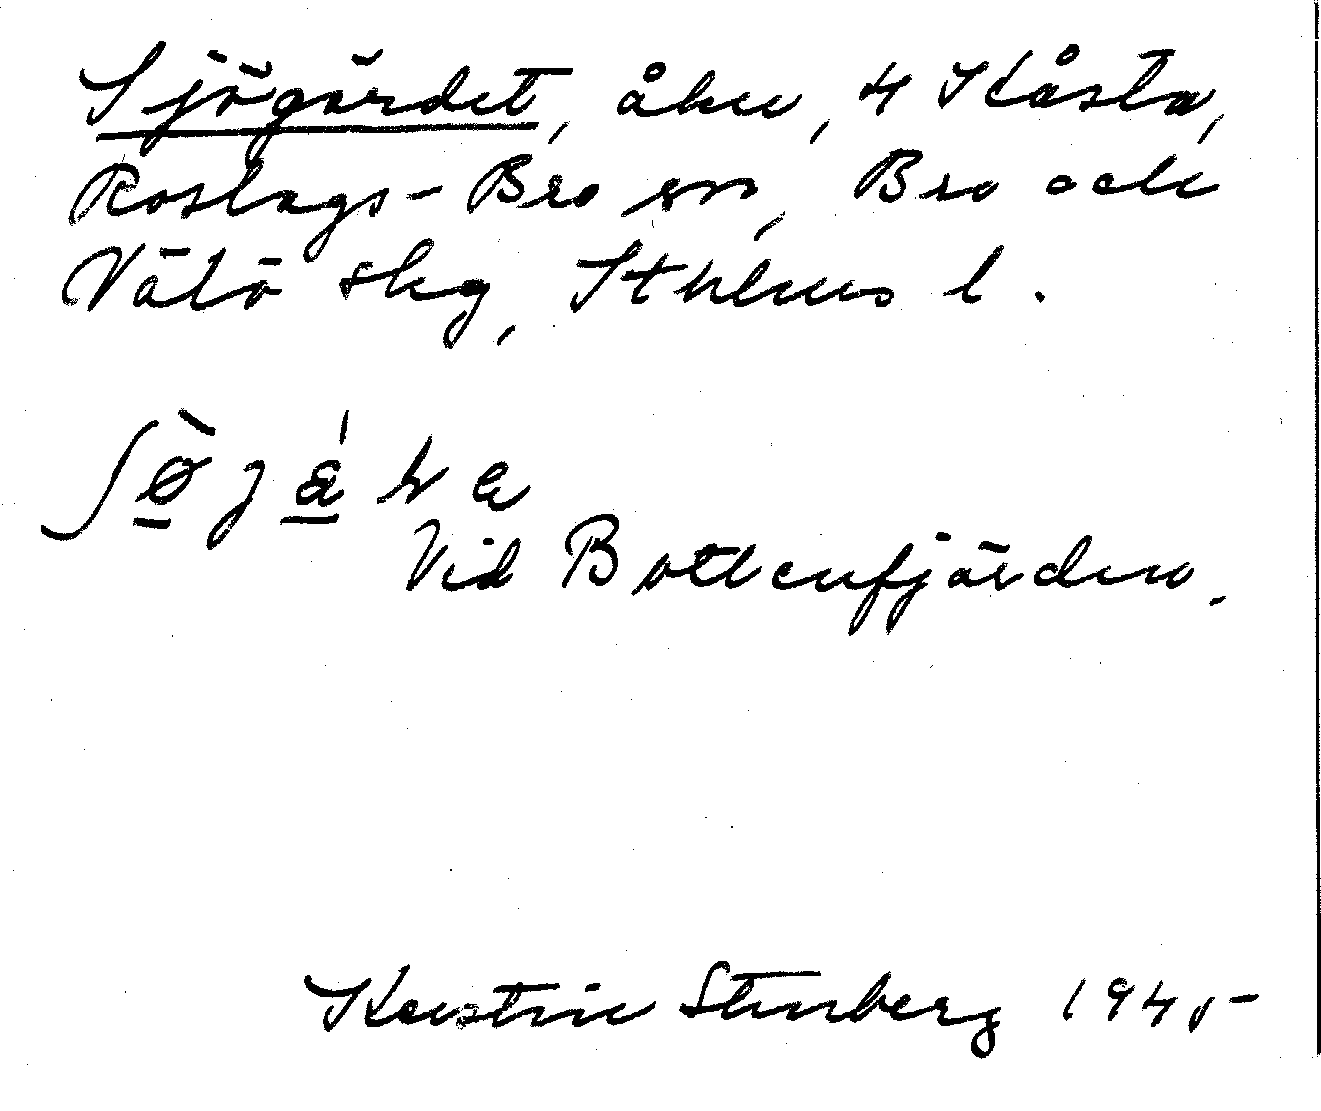 Sjögärdet, åker, 4 Kåsta,
Roslags-Bro sn, Bro och
Vätö skg, Sthlms l.
Vid Bottenfjärden.
Kerstin Stenberg 1945